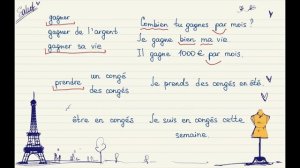 Salut
gagner
Combien tu gagnes par mois ?
gagner de l'argent
Je gagne bien ma vie
gagner sa vie
Il gagne 1000 € par mois.
prendre un congé
des congés
Je prends des congés en été.
être en congés
Je suis en congés cette
semaine.